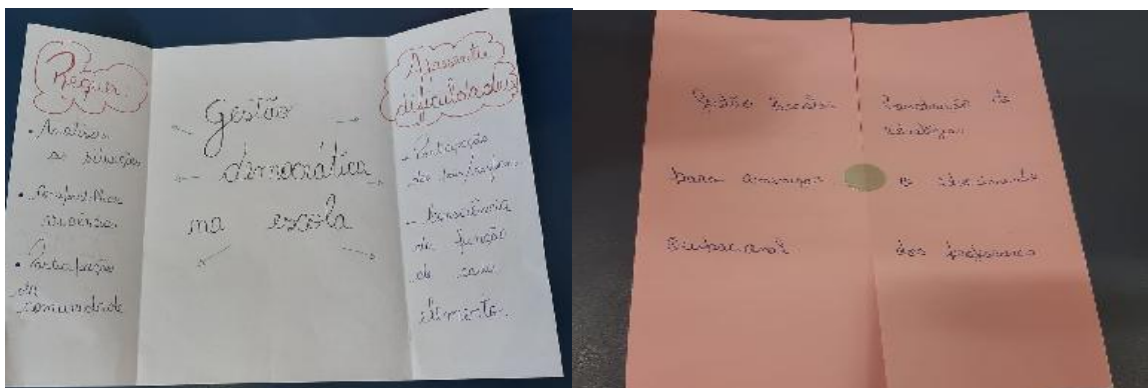 Requer:
• Analisar
as situações
• Compartilhar
vivências
• Participação
da
comunidade
Gestão
democrática
na escola
Apresenta
dificuldades
- Participação
de
- Consciência
da função
de cada
elemento.
Gestão Escolar
para
Construção de
dos professores